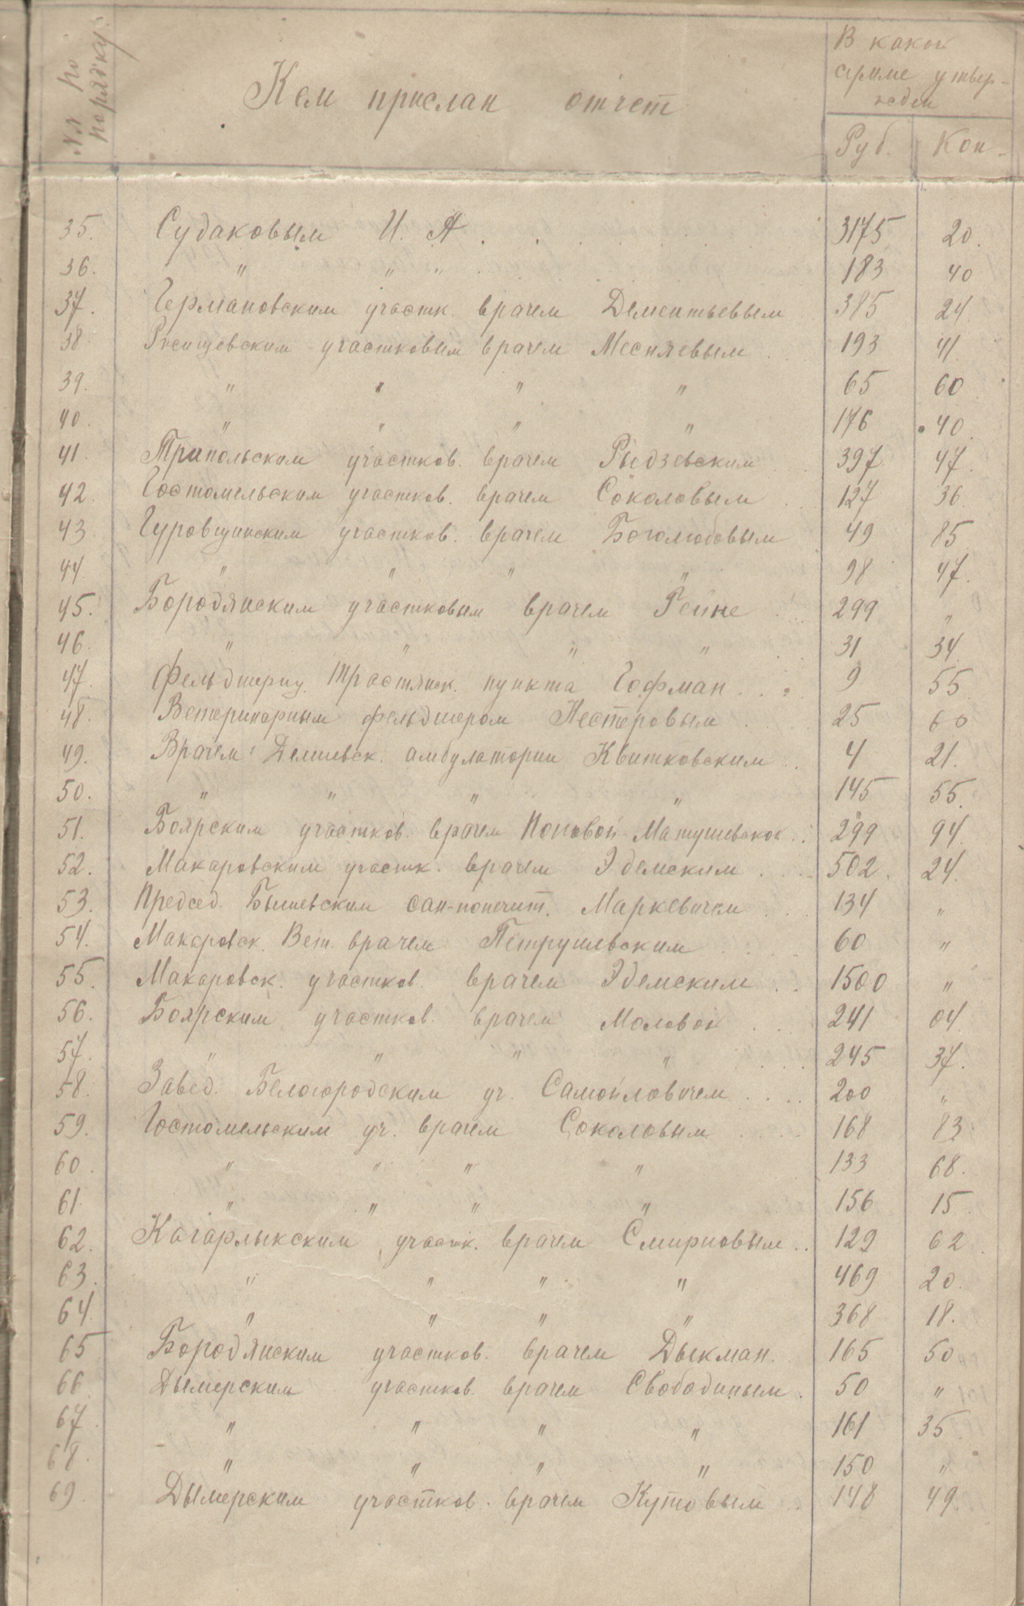 №№ по порядку.
Кем прислан отчет
В какой
сумме утвер-
жден
Руб. Коп.
35. Судаковым И. А. 3175 20.
36. " " " 183 40
37. Германовским участк. врачем Дементьевым 385 24
38 участковым врачем 193 41
39. " " " " 65 60
40. " " " " 176 40
41. Трипольским участков. врачем Рыдзевским 397 47.
42. Гостомельским участков. врачем Соколовым 127 36
43 Гуровщинским участков. врачем Боголюбовым 49 85
44 " " " " 98 47.
45. Бородянским участковым врачем Рейне 299 "
46. " " " " 31 34.
47. Фельдшериц. пункта Гофман 9 55
48. Ветеринарным фельдшером Нестеровым 25 60
49. Врачем амбулатории Квитковским 4 21.
50. " " " " 145 55.
51. Боярским участков. врачем Поповой-Матушевской 299 94.
52. Макаровским участк. врачем Эдемским 502. 24.
53. Председ. Бышевским сан-попечит. Маркевичем 134 "
54. Макаровск. Вет. врачем Петрушевским 60 "
55. Макаровск. участков. врачем Эдемским 1500 "
56. Боярским участков. врачем 241 04
57. " " " " 245 37.
58. Завед. Белогородским уч. Самойловичем 200 "
59. Гостомельским уч. врачем Соколовым 168 83
60. " " " " 133 68.
61 " " " " 156 15.
62. Кагарлыкским участк. врачем Смирновым 129 62
63. " " " " 469 20.
64 " " " " 368 18.
65 Бородянским участков. врачем Дыкман. 165 50
66 Дымерским участков. врачем Свободиным. 50 "
67. " " " " 161 35
68. " " " " 150 "
69. Дымерским участков. врачем Кутовым 148 49.